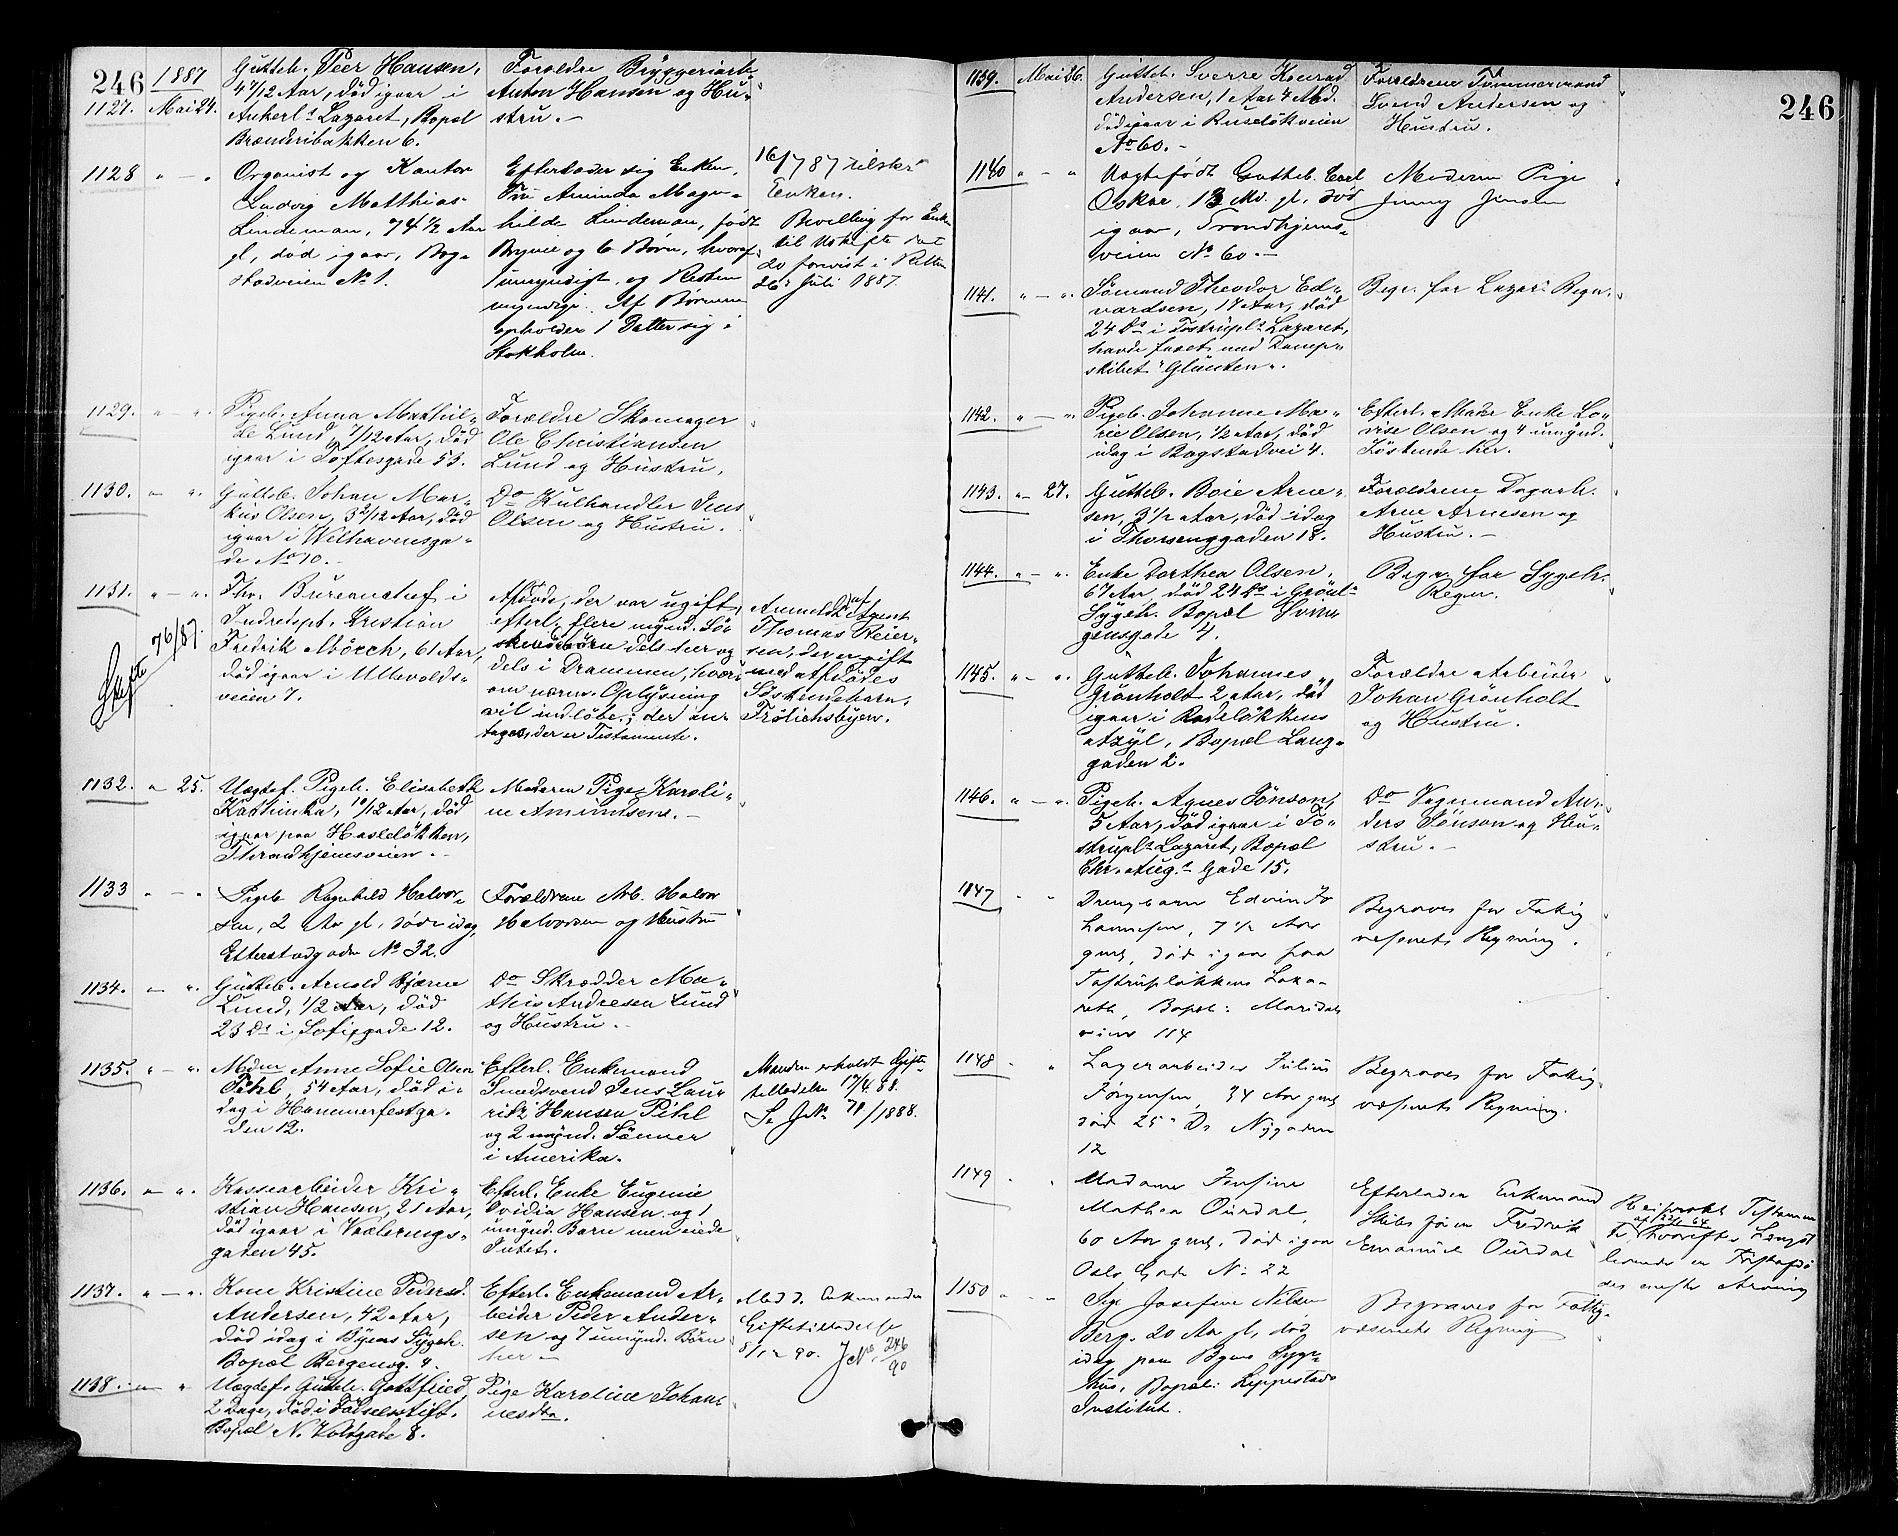 246
1887
1127. Mai 24.
Gutteb. Peer Hansen,
4 7/12 Aar, död igaar i
Ankerl.s Lazaret, Bopæl
Brænderibakken 6.
Forældre Bryggeriarb.
Anton Hansen og Hu-
stru.
1128 " — "
Organist og Kantor
Ludvig Matthias
Lindeman, 74 1/2 Aar
gl, död igaar, Bog-
stadveien No 1.
Efterlader sig Enken,
Fru Aminda Magn-
hilde Lindeman, født
Brynie og 6 Børn, hvoraf
1 umyndigt og Resten
myndige. Af Børnene
opholder 1 Datter sig i
Stokholm.
16/7 87 tilskr.
Enken.
Bevilling for Enken
til Uskifte dat
20 forevist i Retten
26 Juli 1887.
1129. " — "
Pigeb. Anna Mathil-
de Lund, 7/12 Aar, död
igaar i Toftesgade 53.
Forældre Skomager
Ole Christiansen
Lund og Hustru.
1130. " — "
Gutteb. Johan Mar-
kus Olsen, 3 2/12 Aar, död
igaar i Welhavensga-
de No 10.
Do Kulhandler Jens
Olsen og Hustru.
1131. " — "
Skifte 76/87.
Fhv. Bureauchef i
Indredept. Kristian
Fredrik Mörch, 61 Aar,
död igaar i Ullevolds-
veien 7.
Afdøde, der var ugift,
efterl. flere mynd. Sö-
skendebörn dels her og
dels i Drammen, hvor-
om nærm. Oplysning
vil indlöbe; der an-
tages, der er Testamente.
Anmeldt af Agent
Thomas Reier-
sen, der er gift
med Afdödes
Söskendebarn,
Frölichsbyen.
1132. " 25.
Uægtef. Pigeb. Elisabeth
Kathinka, 10/12 Aar, död
igaar paa Hasleløkken,
Throndhjemsveien.
Moderen Pige Karoli-
ne Amundsens.
1133 " — "
Pigeb Ragnhild Halvor-
sen, 2 Aar gl, død idag,
Etterstadgaden No 32.
Forældrene Arb. Halvor
Halvorsen og Hustru
1134. " — "
Gutteb. Arnold Bjarne
Lund, 1/2 Aar, död
23 Ds i Sofiegade 12.
Do Skrædder Ma-
this Andresen Lund
og Hustru.
1135. " — "
Mdme Anne Sofie Olsen
Pihl, 54 Aar, död i-
dag i Hammerfestga-
den 12.
Efterl. Enkemand
Smedsvend Jens Lau-
ritz Hansen Pihl
og 2 mynd. Sönner
i Amerika.
Manden erholdt Gifte-
tilladelse 17/4 88.
Se JNo 71/1888.
1136. " — "
Kassearbeider Kri-
stian Hansen, 21 Aar,
död igaar i Vaalerings-
gaten 45.
Efterl. Enke Eugenie
Ovidia Hansen og 1
umynd. Barn men eiede
Intet.
1137. " — "
Kone Kristine Pedersd.
Andersen, 42 Aar,
död idag i Byens Sygeh.
Bopæl Bergensg. 4.
Efterl. Enkemand Ar-
beider Peder Ander-
sen og 7 umynd. Börn
her
Medd. Enkemanden
Giftetilladelse
5/12 90. JNo 246/90
1138. " — "
Uægtef. Gutteb. Gottfried,
2 Dage, död i Födselsstift.
Bopæl N. Voldgade 8.
Pige Karoline Johan-
nesdtr.
246
1139. Mai 26.
Gutteb. Sverre Konrad
Andersen, 1 Aar 4 Md.
död igaar i Ruselökveien
No 60.
Forældrene Tømmermand
Svend Andersen og
Hustru.
1140 " — "
Uægtefødt Gutteb. Carl
Oskar, 13 Md. gl, død
igaar, Trondhjems-
veien No 60.
Moderen Pige
Jenny Jensen
1141. " — "
Sömand Theodor Ed-
vardsen, 17 Aar, död
24 Ds i Tostrupl.s Lazaret,
havde faret med Damp-
skibet "Glünten".
Begr. for Lazar. Regn.
1142. " — "
Pigeb. Johanne Ma-
rie Olsen, 1/2 Aar, död
idag i Bogstadvei 4.
Efterl. Moder Enke Lo-
vise Olsen og 4 umynd.
Söskende her.
1143. " 27.
Gutteb. Boie Arne-
sen, 3 1/2 Aar, död idag
i Thorsenggaden 18.
Forældrene Dagarb.
Arne Arnesen og
Hustru.
1144. " — "
Enke Dorthea Olsen,
67 Aar, död 24 Ds i Grönl.s
Sygeh. Bopæl Svin-
gensgade 14.
Begr. for Sygeh.
Regn.
1145. " — "
Gutteb. Johannes
Grönholt 2 Aar, död
igaar i Rodelökkens
Azyl, Bopæl Lang-
gaden 2.
Forældre Arbeider
Johan Grönholt
og Hustru.
1146. " — "
Pigeb. Agnes Jönson,
5 Aar, död igaar i To-
strupl.s Lazaret, Bopæl
Chr. Aug.s Gade 15.
Do Vognmand An-
ders Jönson og Hu-
stru.
1147 " "
Drengbarn Edvin Jo
hannesen, 7 1/2 Aar
gml, død igaar paa
Tostrupløkkens Laza-
reth, Bopæl: Maridals
veien 114
Begraves for Fattig
væsenets Regning.
1148 " "
Lagerarbeider Julius
Jørgensen, 34 Aar gml
død 25 Ds Nygaden
12
Begraves for Fattig-
væsenets Regning.
1149 " "
Madame Jensine
Mathea Ourdal,
60 Aar gml, død igaar
Oslo Gade No 22
Efterlader Enkemand
Skibsfører Fredrik
Emanuel Ourdal
Reiprokt Testamen
te hvorefter Længst
levende er Førstafdø
des eneste Arving
1150 " "
Pige Josefine Nilsen
Berg, 20 Aar gl, død
idag paa Byens Syge-
hus, Bopæl: Eeppestads
Institut.
Begraves for Fattig-
væsenets Regning